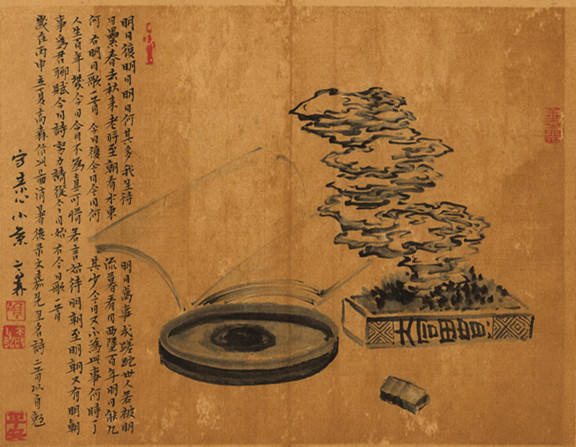 明日復明日明日何其多我生待明日萬事成蹉跎世人若被明
日累春去秋來老將至朝看水東流暮看日西墜百年明日能幾
何 右明日歌一首 今日復今日今日何其少今日又不為此事何時了
人生百年幾今日今日不為真可惜若言姑待明朝至明朝又有明朝
事為君聊賦今日詩努力請從今日始 右今日歌一首
歲在丙申立夏高森作此圖消暑後錄文嘉先生名詩二首以自勉
守素心小景